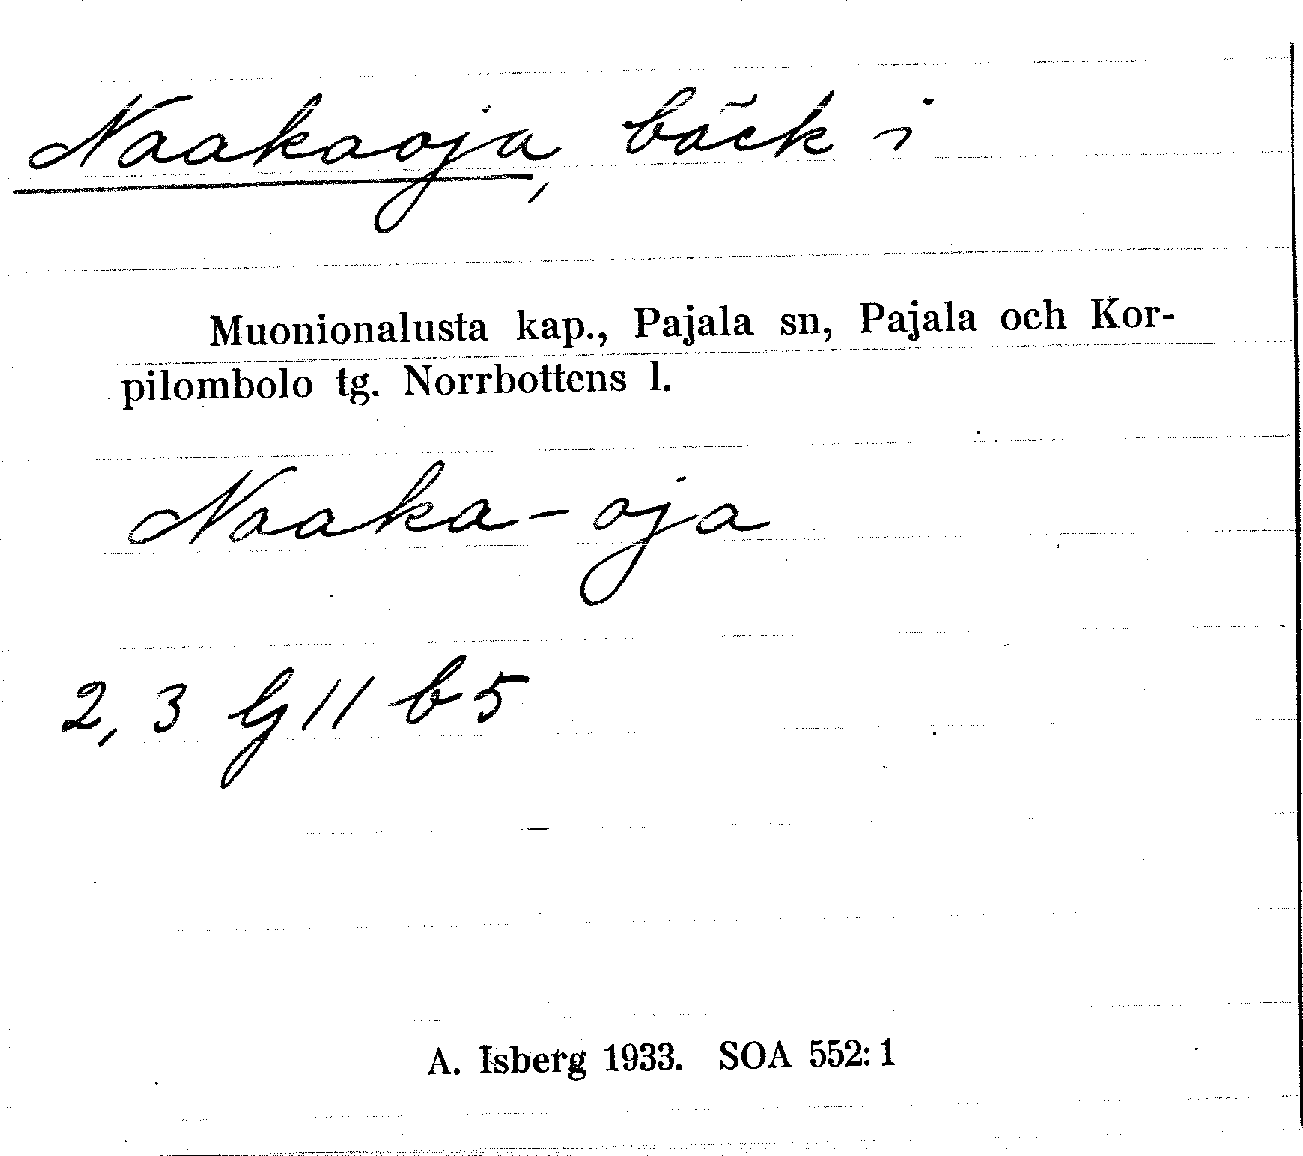 Naakaoja, bäck i
Muonionalusta kap., Pajala sn, Pajala och Kor-
pilombolo tg. Norrbottens l.
Naaka-oja
2, 3 G 11 b 5
A. Isberg 1933. SOA 552: 1